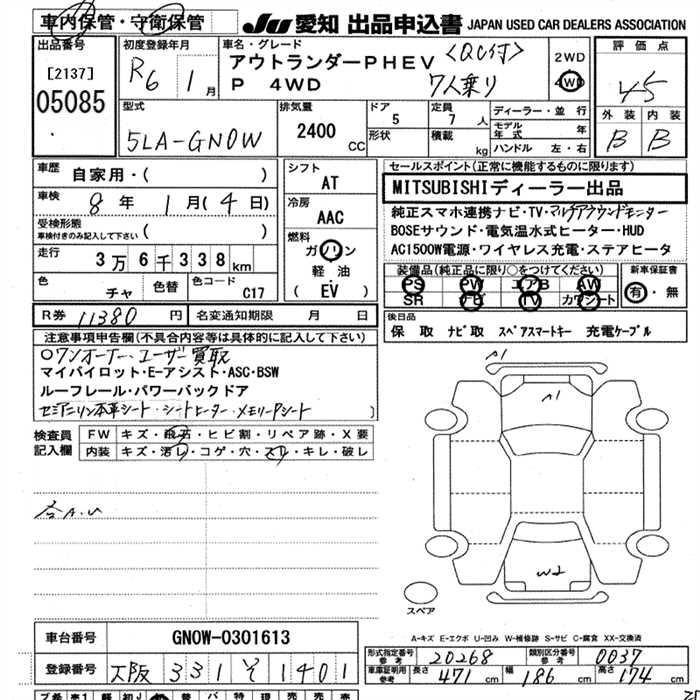 車内保管・守衛保管
JU 愛知 出品申込書 JAPAN USED CAR DEALERS ASSOCIATION
出品番号
[2137]
05085
初度登録年月
R6 1月
車名・グレード
アウトランダーPHEV <QC付>
P 4WD 7人乗り
2WD
4WD
評価点
4.5
外装 内装
B B
型式
5LA-GN0W
排気量
2400 CC
ドア 5
形状
定員 7 人
積載 kg
ディーラー・並行
モデル年式 年
ハンドル 左・右
車歴 自家用・( )
車検 8年 1月(4日)
受検形態
車検付きのみ記入して下さい ( )
走行 3万6千338km
色 チャ 色替 色コード C17
シフト AT
冷房 AAC
燃料
ガソリン
軽油
(EV)
セールスポイント(正常に機能するものに限ります)
MITSUBISHIディーラー出品
純正スマホ連携ナビ・TV・マルチアラウンドモニター
BOSEサウンド・電気温水式ヒーター・HUD
AC1500W電源・ワイヤレス充電・ステアヒータ
装備品(純正品に限り○をつけてください)
PS PW エアB AW
SR ナビ TV カワシート
新車保証書
有・無
後日品
保 取 ナビ取 スペアスマートキー 充電ケーブル
R券 11380 円 名変通知期限 月 日
注意事項申告欄(不具合内容等は具体的に記入して下さい)
○ワンオーナー、ユーザー買取
マイパイロット・E-アシスト・ASC・BSW
ルーフレール・パワーバックドア
セミアニリン本革シート・シートヒーター・メモリーPシート )
検査員記入欄
FW キズ・飛石・ヒビ割・リペア跡・X要
内装 キズ・汚レ・コゲ・穴・スレ・キレ・破レ
各A.U
A1
A1
W2
スペア
A-キズ E-エクボ U-凹み W-補修跡 S-サビ C-腐食 XX-交換済
車台番号 GN0W-0301613
登録番号 大阪 331 そ 1401
型式指定番号 参考 20268 類別区分番号 参考 0037
車庫証明用 参考 長さ 471 幅 186 高さ 174 cm